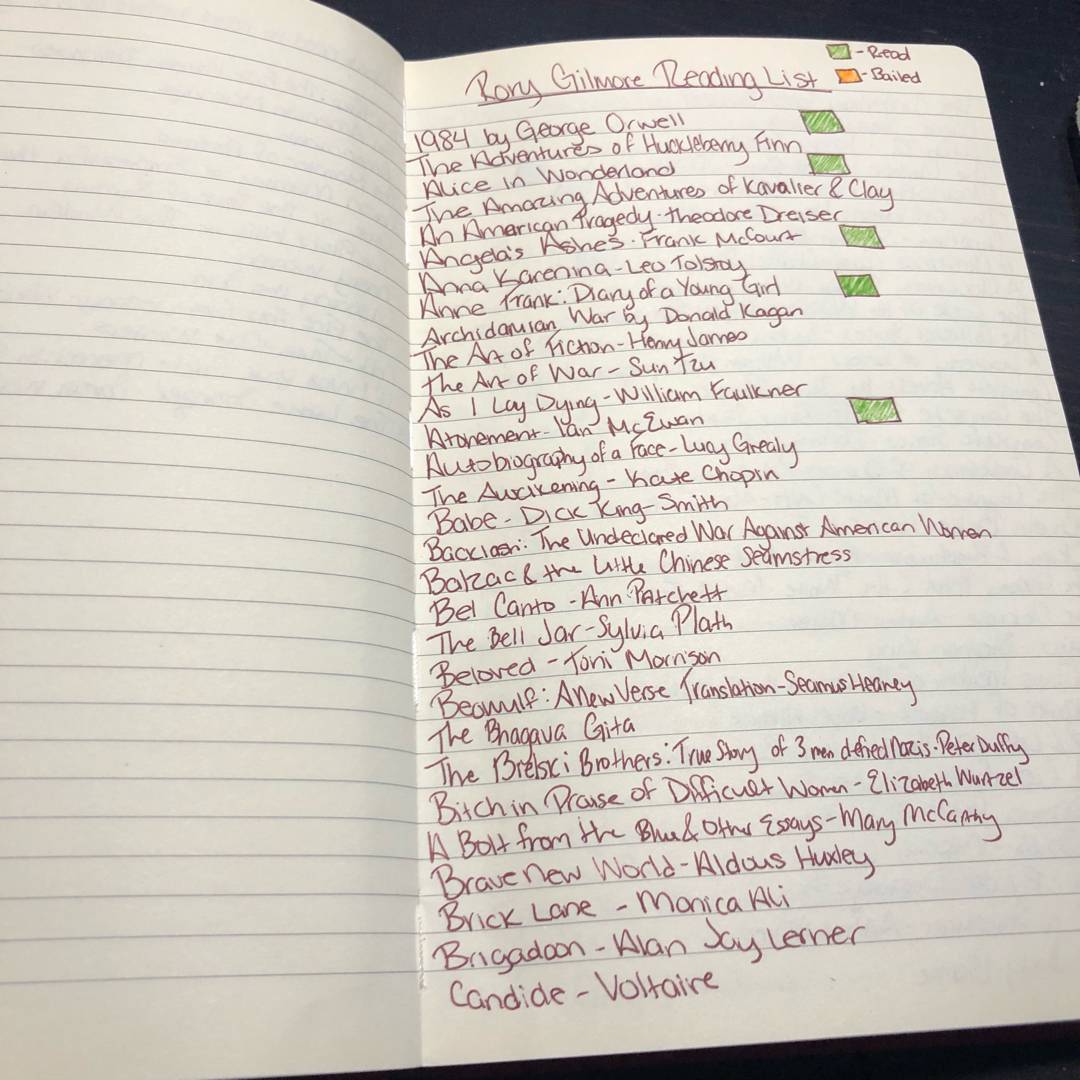 - Read
- Bailed
Rory Gilmore Reading List
1984 by George Orwell
The Adventures of Huckleberry Finn
Alice in Wonderland
The Amazing Adventures of Kavalier & Clay
An American Tragedy - Theodore Dreiser
Angela's Ashes - Frank McCourt
Anna Karenina - Leo Tolstoy
Anne Frank: Diary of a Young Girl
Archidamian War by Donald Kagan
The Art of Fiction - Henry James
The Art of War - Sun Tzu
As I Lay Dying - William Faulkner
Atonement - Ian McEwan
Autobiography of a Face - Lucy Grealy
The Awakening - Kate Chopin
Babe - Dick King-Smith
Backlash: The Undeclared War Against American Women
Balzac & the Little Chinese Seamstress
Bel Canto - Ann Patchett
The Bell Jar - Sylvia Plath
Beloved - Toni Morrison
Beowulf: A New Verse Translation - Seamus Heaney
The Bhagava Gita
The Brelski Brothers: True Story of 3 men defied Nazis - Peter Duffy
Bitch in Praise of Difficult Women - Elizabeth Wurtzel
A Bolt from the Blue & Other Essays - Mary McCarthy
Brave New World - Aldous Huxley
Brick Lane - Monica Ali
Brigadoon - Alan Jay Lerner
Candide - Voltaire